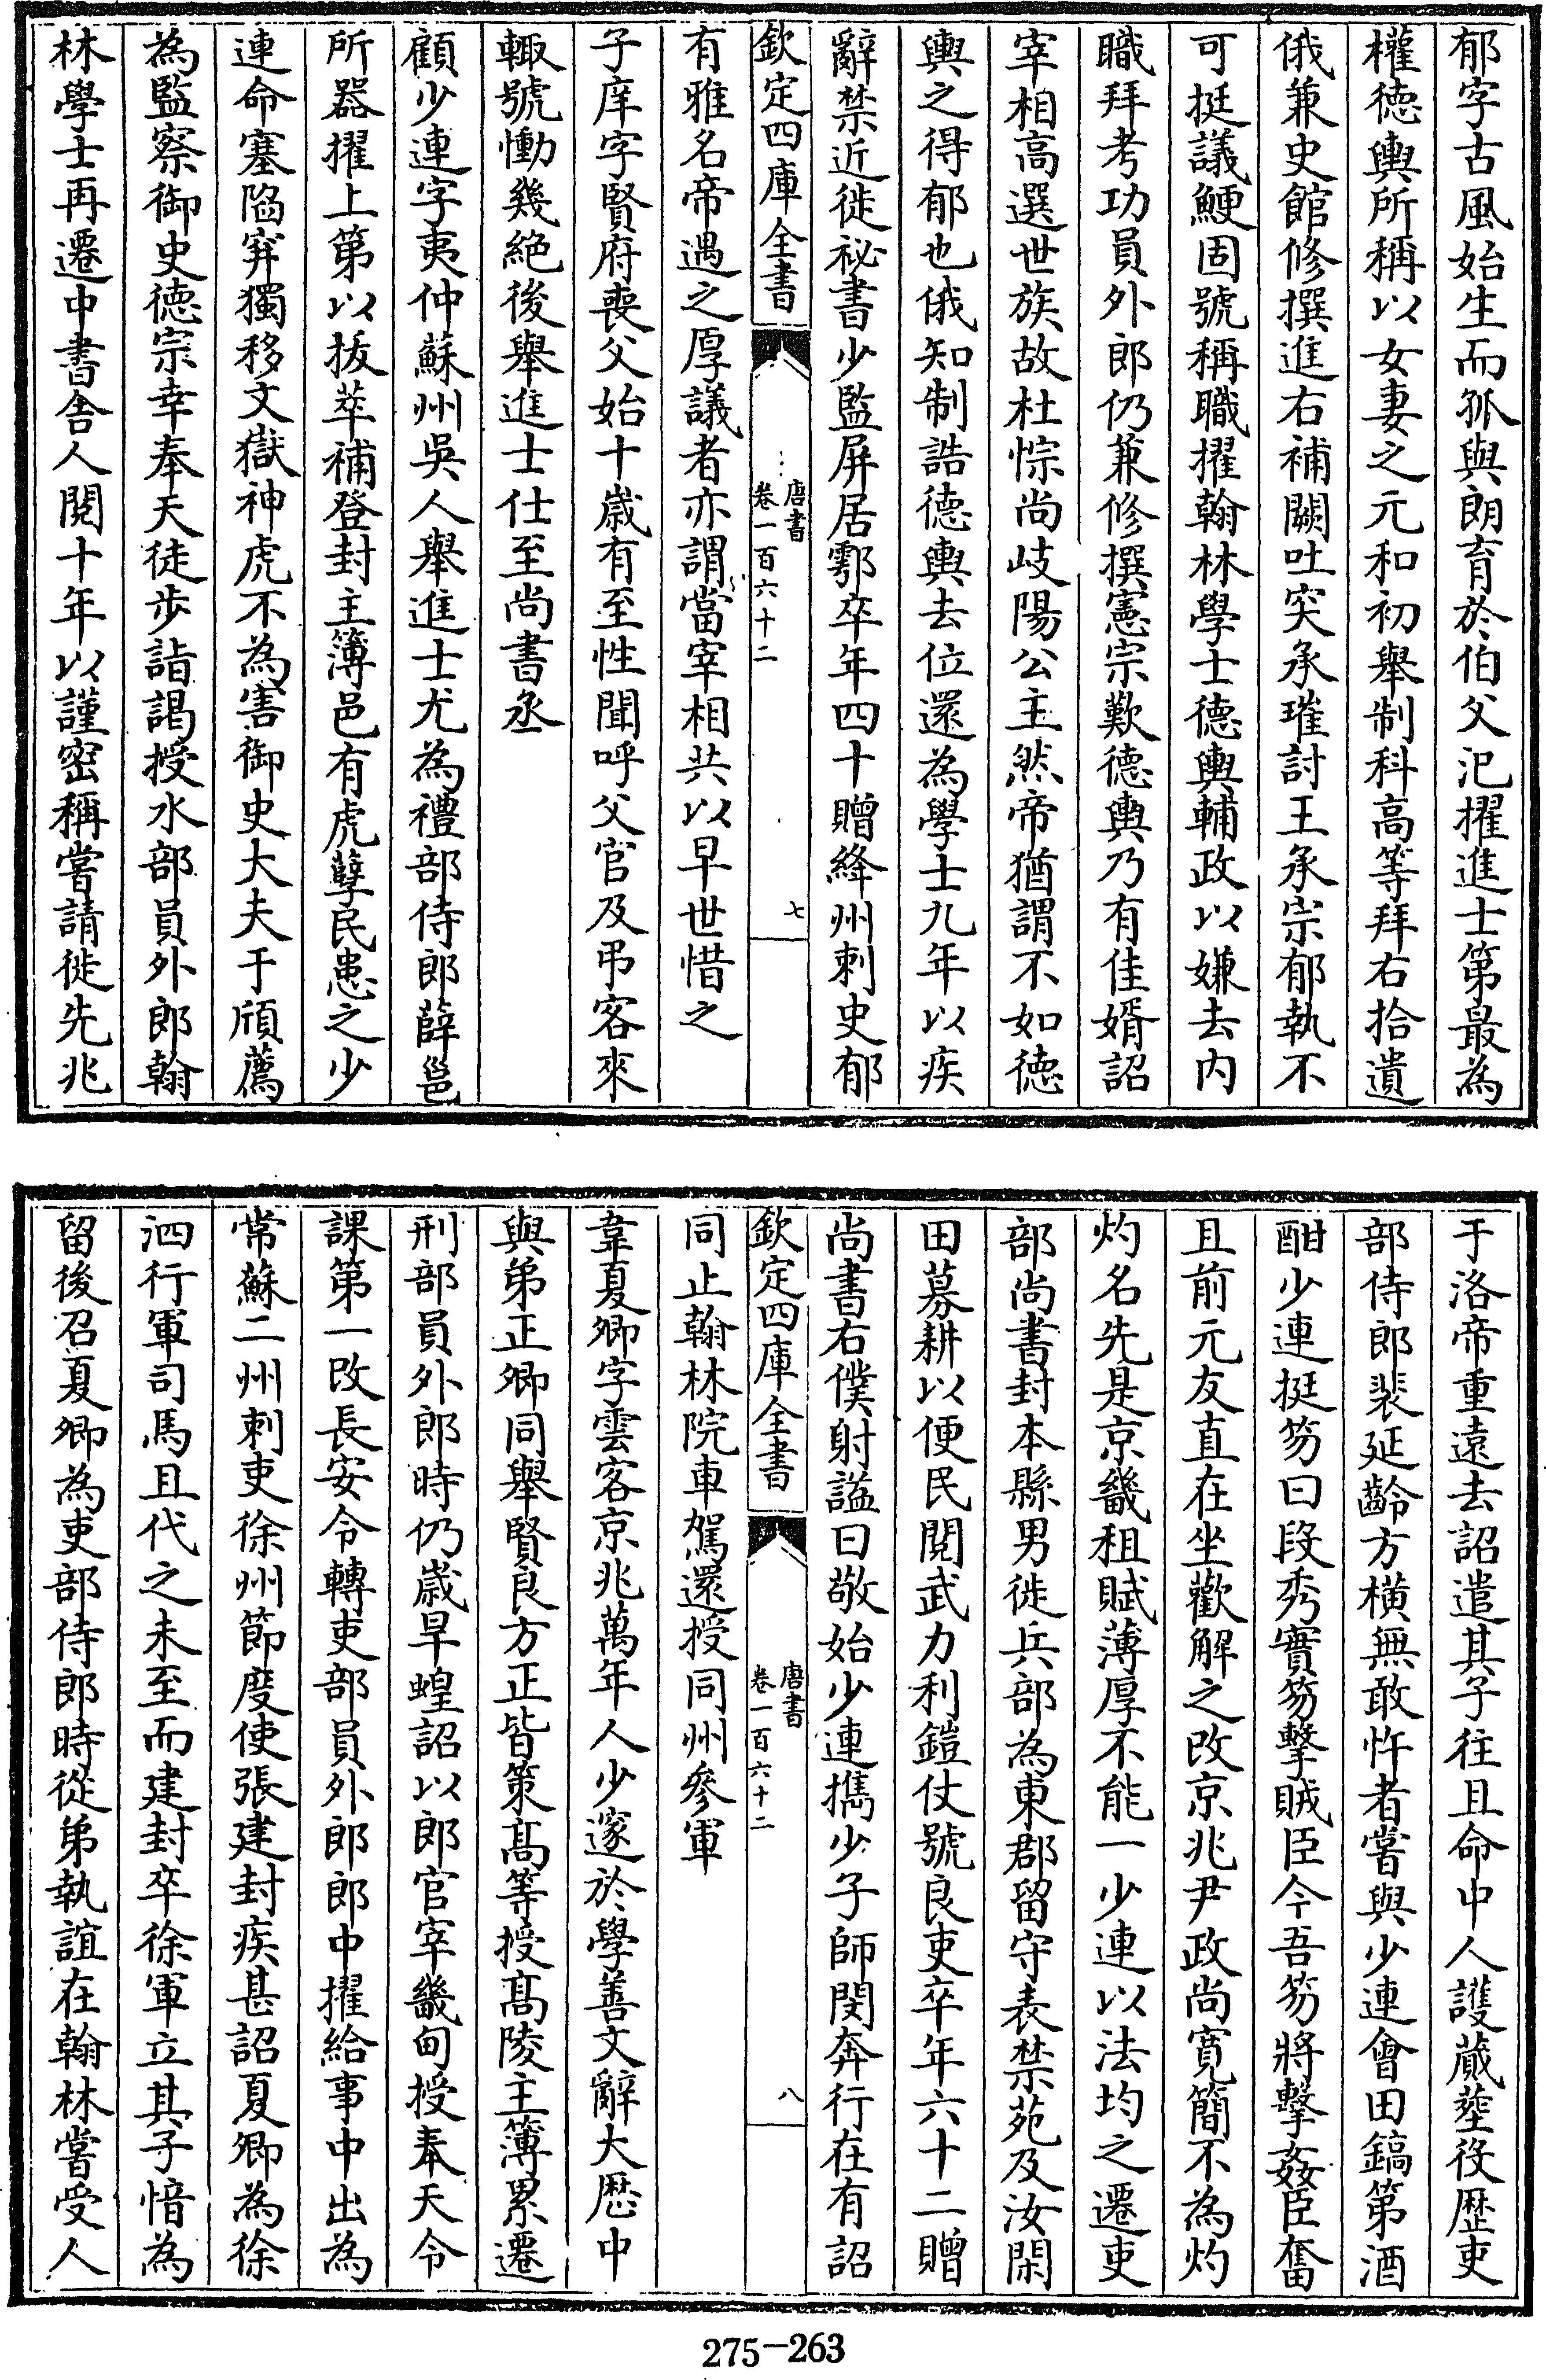 郁字古風始生而孤與朗育於伯父汜擢進士第最為
權徳輿所稱以女妻之元和初舉制科高等拜右拾遺
俄兼史館修撰進右補闕吐突承璀討王承宗郁執不
可挺議鯁固號稱職擢翰林學士德輿輔政以嫌去内
職拜考功員外郎仍兼修撰憲宗歎德輿乃有佳婿詔
宰相高選世族故杜悰尚岐陽公主然帝猶謂不如徳
輿之得郁也俄知制誥德輿去位還為學士九年以疾
辭禁近徙祕書少監屏居鄠卒年四十贈絳州刺史郁
欽定四庫全書
唐書
卷一百六十二
七
有雅名帝遇之厚議者亦謂當宰相共以早世惜之
子庠字賢府喪父始十歳有至性聞呼父官及弔客來
輙號慟幾絶後舉進士仕至尚書丞
顧少連字夷仲蘇州吳人舉進士尤為禮部侍郎薛邕
所器擢上第以拔萃補登封主簿邑有虎孽民患之少
連命塞陷穽獨移文嶽神虎不為害御史大夫于頎薦
為監察御史徳宗幸奉天徒步詣謁授水部員外郎翰
林學士再遷中書舍人閱十年以謹密稱嘗請徙先兆
于洛帝重遠去詔遣其子往且命中人護蕆塟役歴吏
部侍郎裴延齡方横無敢忤者嘗與少連會田鎬第酒
酣少連挺笏曰段秀實笏擊賊臣今吾笏將擊姦臣奮
且前元友直在坐歡解之改京兆尹政尚寛簡不為灼
灼名先是京畿租賦薄厚不能一少連以法均之遷吏
部尚書封本縣男徙兵部為東郡留守表禁苑及汝閑
田募耕以便民閲武力利鎧仗號良吏卒年六十二贈
尚書右僕射諡曰敬始少連攜少子師閔奔行在有詔
欽定四庫全書
唐書
卷一百六十二
八
同止翰林院車駕還授同州參軍
韋夏卿字雲客京兆萬年人少邃於學善文辭大厯中
與弟正卿同舉賢良方正皆策髙等授髙陵主簿累遷
刑部員外郎時仍歳旱蝗詔以郎官宰畿甸授奉天令
課第一改長安令轉吏部員外郎郎中擢給事中出為
常蘇二州刺史徐州節度使張建封疾甚詔夏卿為徐
泗行軍司馬且代之未至而建封卒徐軍立其子愔為
留後召夏卿為吏部侍郎時從弟執誼在翰林嘗受人
275-263